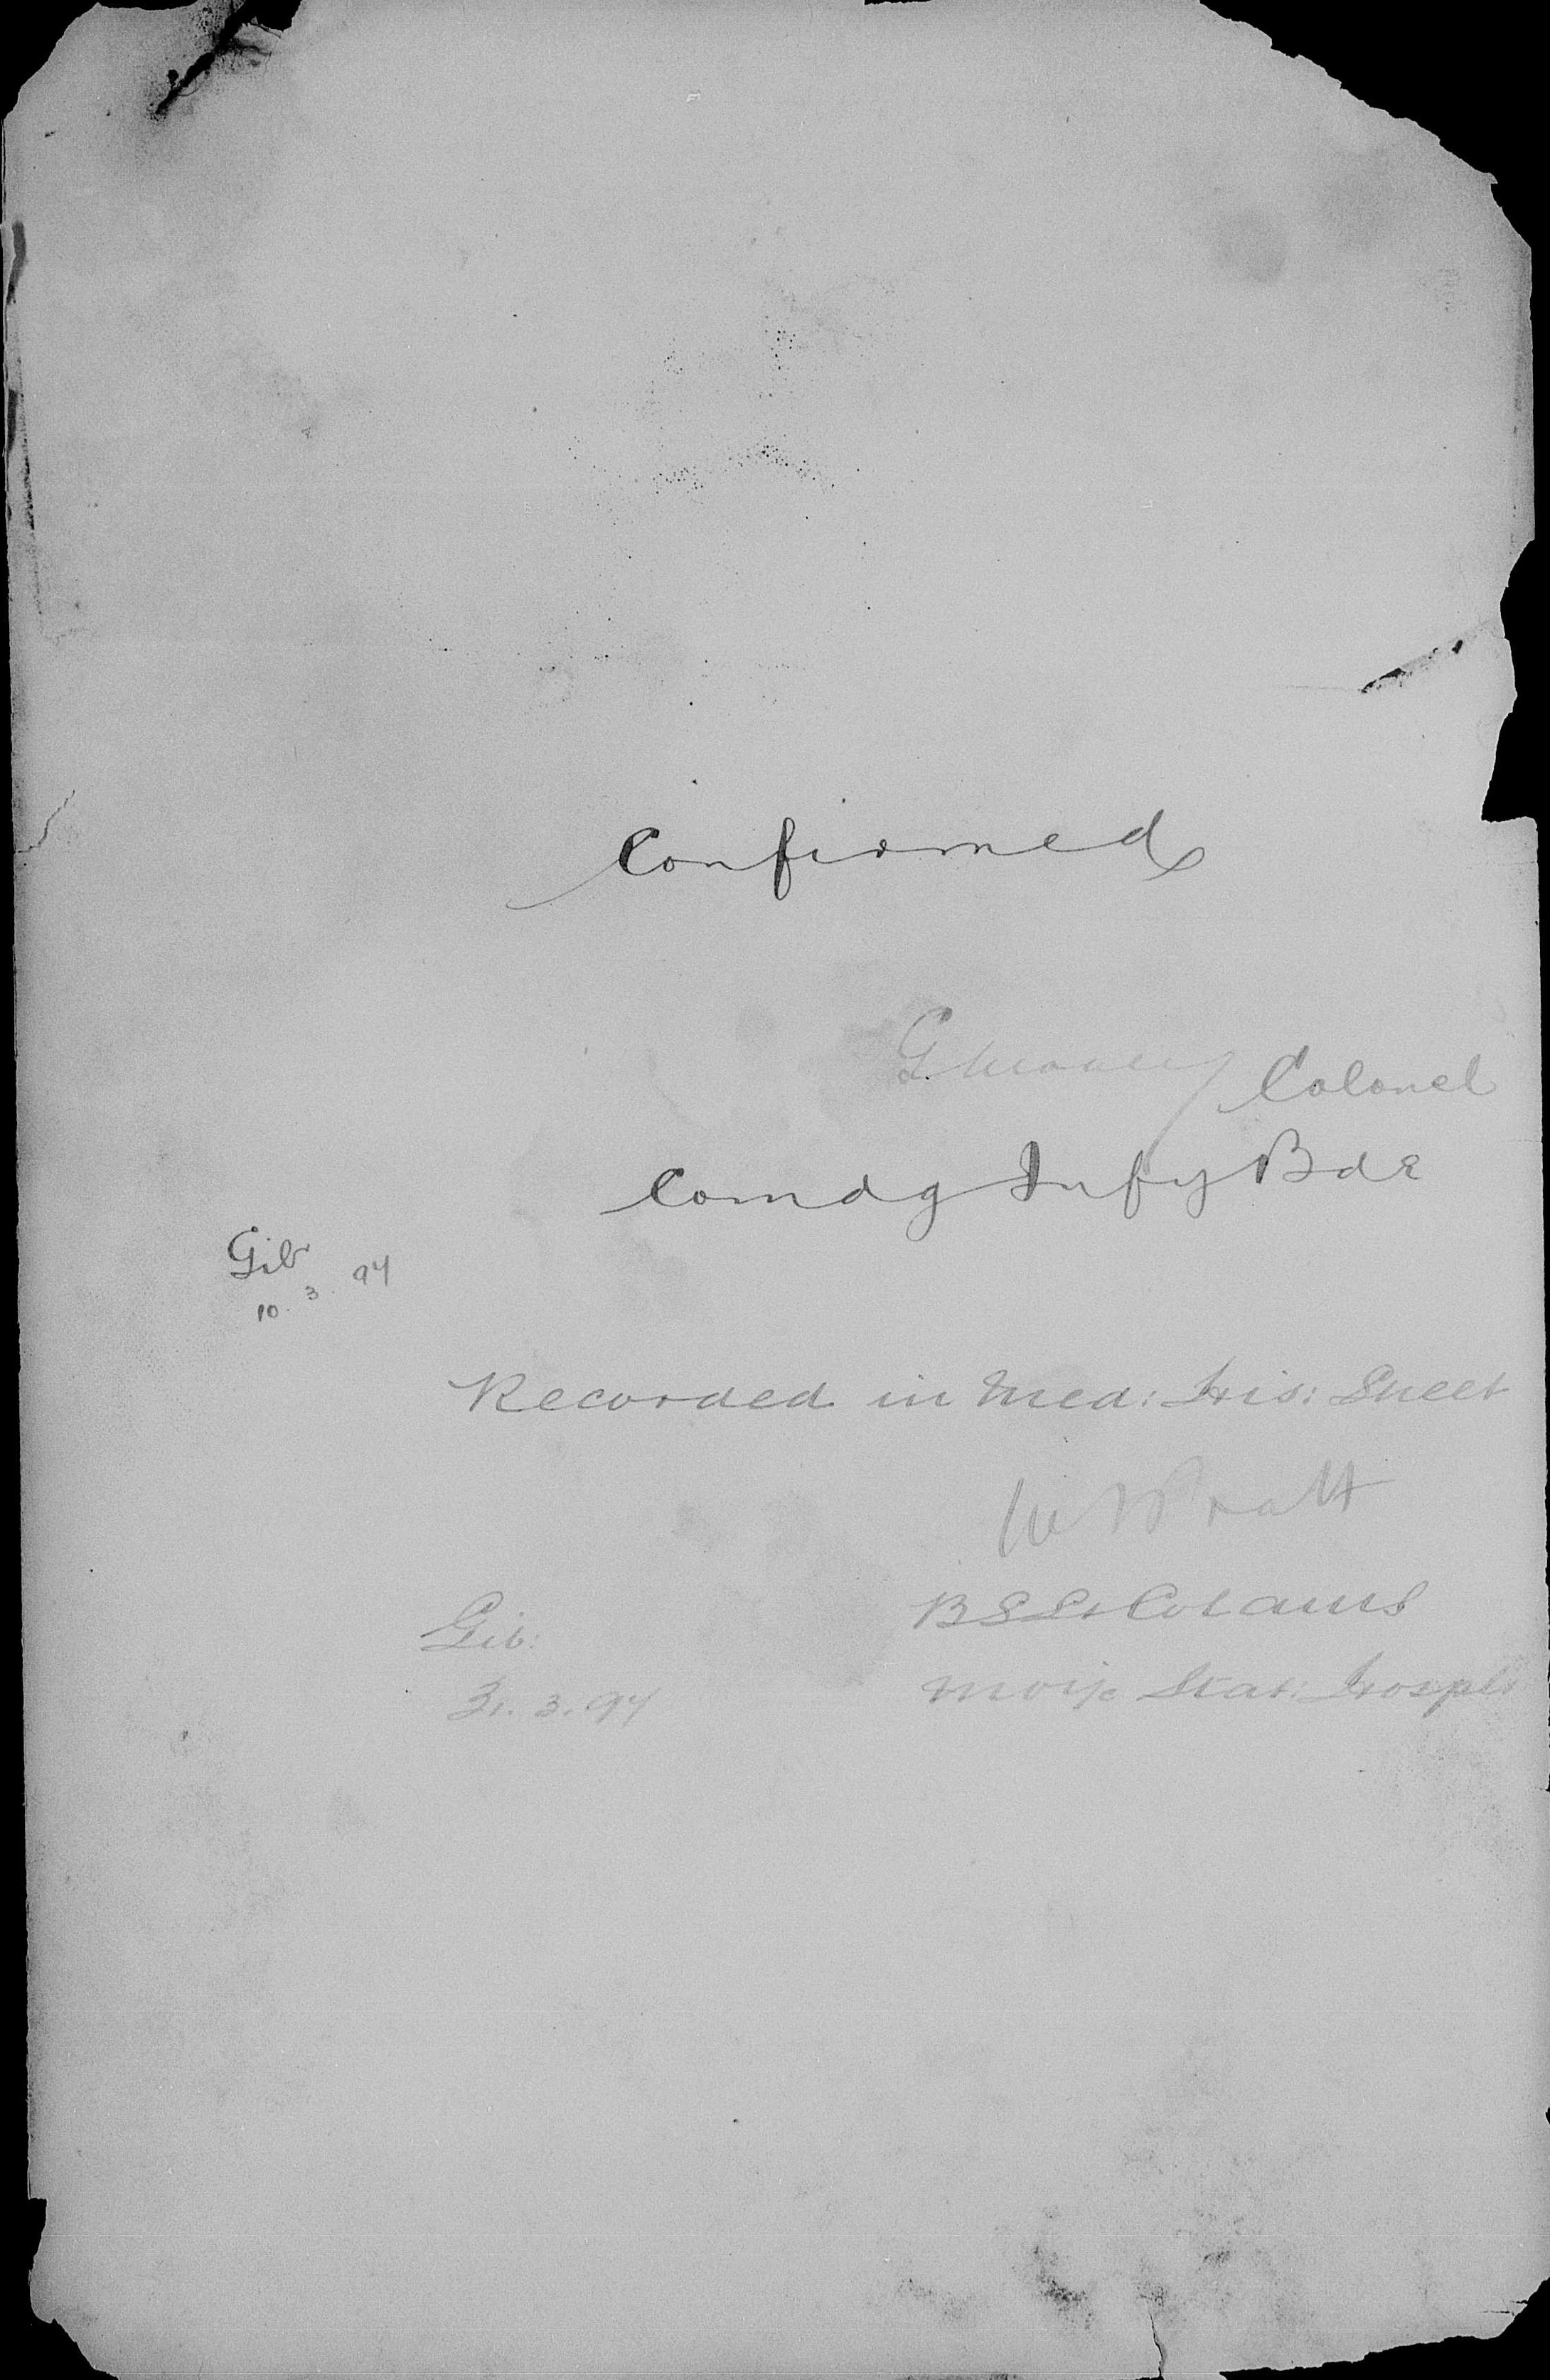 Confirmed
Colonel
Comdg Infy Bde
Gib
10. 3. 94
Recorded in Med: His: Sheet
W Pratt
B S Lt Col AMS
Gib:
31. 3. 94
M o i/c Stat: Hospl